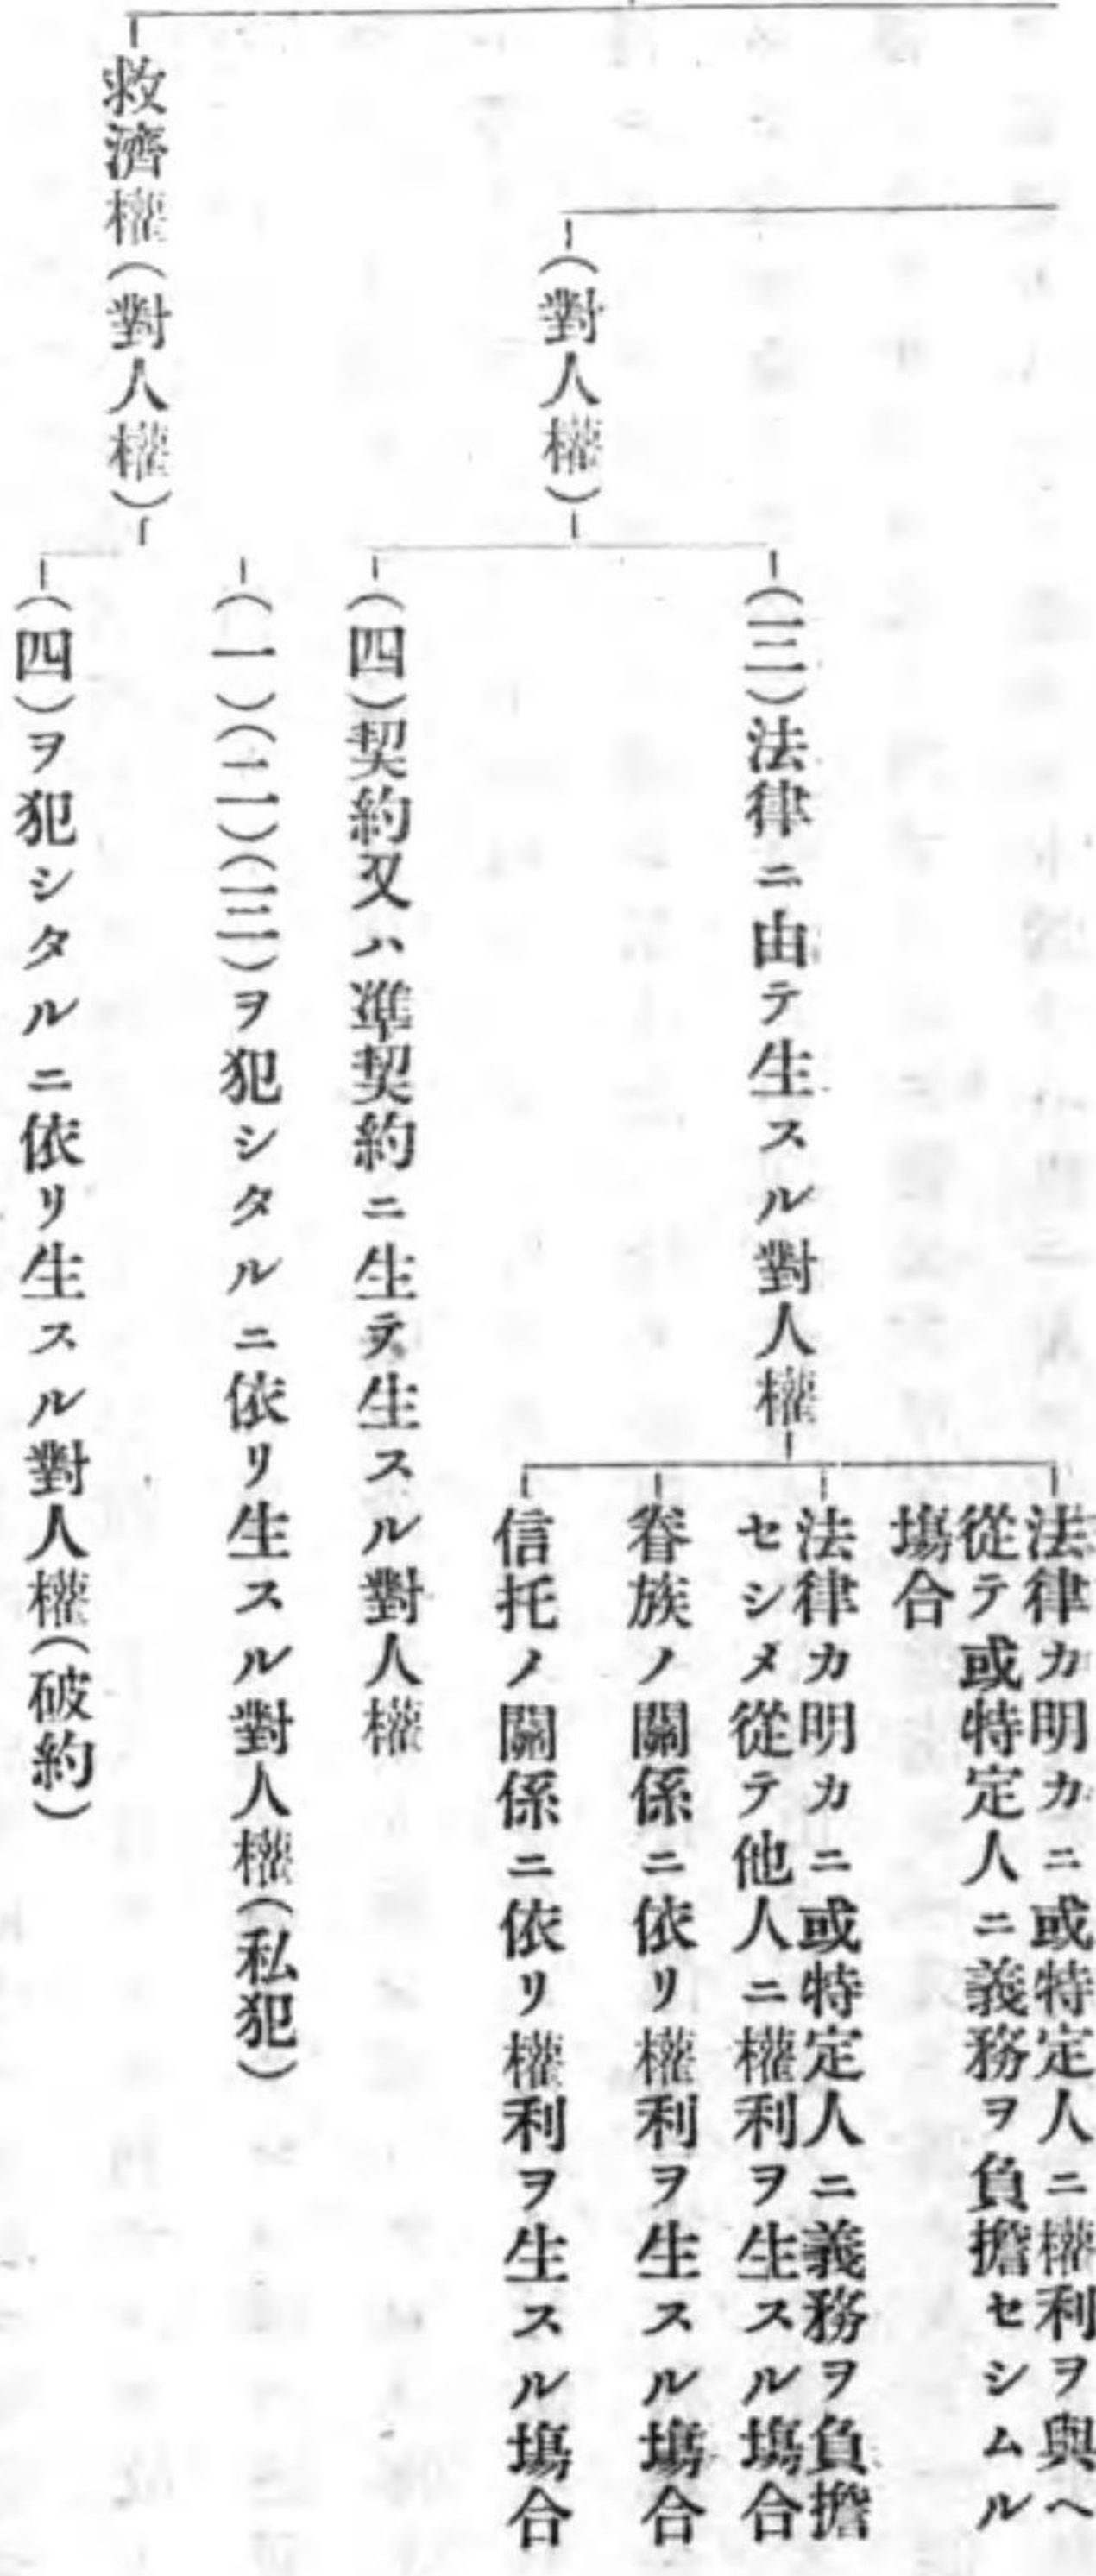 (對人權)
(三)法律ニ由テ生スル對人權
法律カ明カニ或特定人ニ權利ヲ與ヘ
從テ或特定人ニ義務ヲ負擔セシムル
塲合
法律カ明カニ或特定人ニ義務ヲ負擔
セシメ從テ他人ニ權利ヲ生スル塲合
眷族ノ關係ニ依リ權利ヲ生スル塲合
信托ノ關係ニ依リ權利ヲ生スル塲合
(四)契約又ハ準契約ニ生テ生スル對人權
救濟權(對人權)
(一)(二)(三)ヲ犯シタルニ依リ生スル對人權(私犯)
(四)ヲ犯シタルニ依リ生スル對人權(破約)